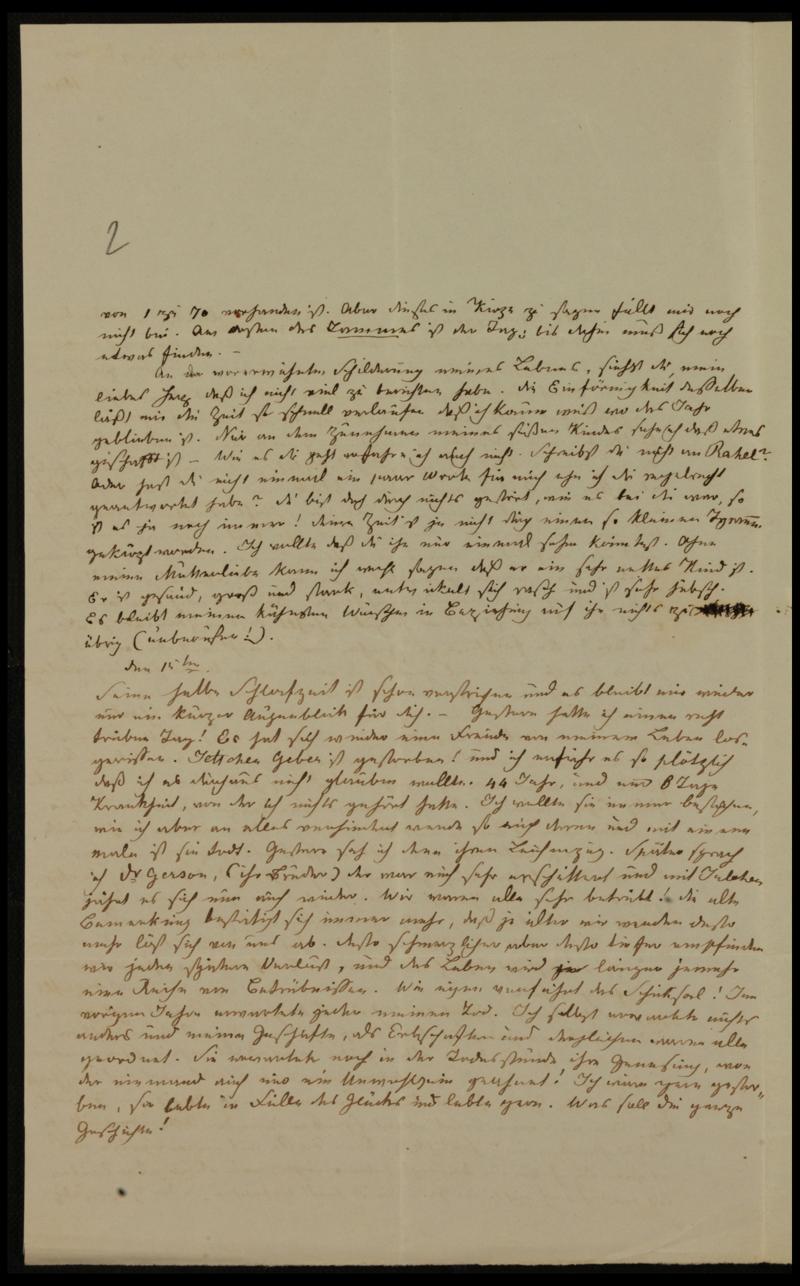 2
von 1 zu 70 vorhanden ist. Aber dieses in Kürze zu sagen fällt mir noch
nicht bei. Am ersten des Tammus ist der Tag; bis dahin muß sich noch
etwas finden. –
An der vorerwähnten Schilderung meines Lebens, siehst du, mein
liebes Herz daß ich nicht viel zu berichten habe. Die Einförmigkeit desselben
läßt mir die Zeit so schnell verlaufen daß ich kaum weiß wo das Jahr
geblieben ist. Nur an dem Zunehmen meines süßen Kindes sehe ich daß etwas
geschafft ist – Wie es dir geht erfahre ich auch nicht. Schreibst du nicht an Rahel?
Oder hast du nicht einmal ein paar Worte für mich ohne ich dir regelrecht
geantwortet habe? du bist doch durch nichts gestört, wie es bei dir war, so
ist es ja noch immer! deine Zeit ist ja nicht durch einen so kleinen Tyrann
gekürzt worden. Ich wollte daß du ihn nur einmal sehen könntest. Ohne
meine Mutterliebe kann ich wohl sagen daß er ein sehr nettes Kind ist.
Er ist gesund, groß und stark, entwickelt sich rasch und ist sehr hübsch.
Es bleibt meinen kühnsten Wünschen in Beziehung auf ihn nichts zu
übrig (unberufen!).
den 15ten.
Seine halbe Schlafzeit ist schon verstrichen und es bleibt mir wieder
nur ein kurzer Augenblick für dich. – Gestern hatte ich einen recht
trüben Tag! Es hat sich wieder eine Freundin von meinem Leben los-
gerissen. Jettchen ist gestorben! und ich erfuhr es so plötzlich
daß ich es durchaus nicht glauben wollte. 44 Jahr, und nur 8 Tage
Krankheit, von der ich nichts gehört hatte. Ich wollte sie immer besuchen,
wie ich aber an alles verhindert werde so auch daran und mit einem
male ist sie todt. Gestern sah ich den ihren Leichenzug. Später sprach
ich Dr Gerson, (ihr Bruder) der war auch sehr erschüttert und mit Julchen
es sich nun auch wieder. Wir waren alle sehr betrübt! die alte
Bemerkung bestätigt sich immer mehr, daß je älter wir werden desto
mehr löst sich von uns ab. desto schmerzlicher aber desto tiefer empfinden
wir jeden spätern Verlust, und das Leben wird länger jemehr
eine Reihe von Betrübnissen. Wie eigen verfährt das Schicksal! Im
vorigen Jahre erwartete jeder meinen Tod. Ich selbst erwartete nichts
anders und meine Geschäfte, als Erbschaften und dergleichen waren alle
geordnet. Sie erwartete noch in der Todesstunde ihre Genesung, von
der niemand auch nur ein Unwohlsein geahnet! Ich wäre gern gestor-
ben, sie lebte in Fülle des Glücks und lebte gern. Was soll die ganze
Geschichte!